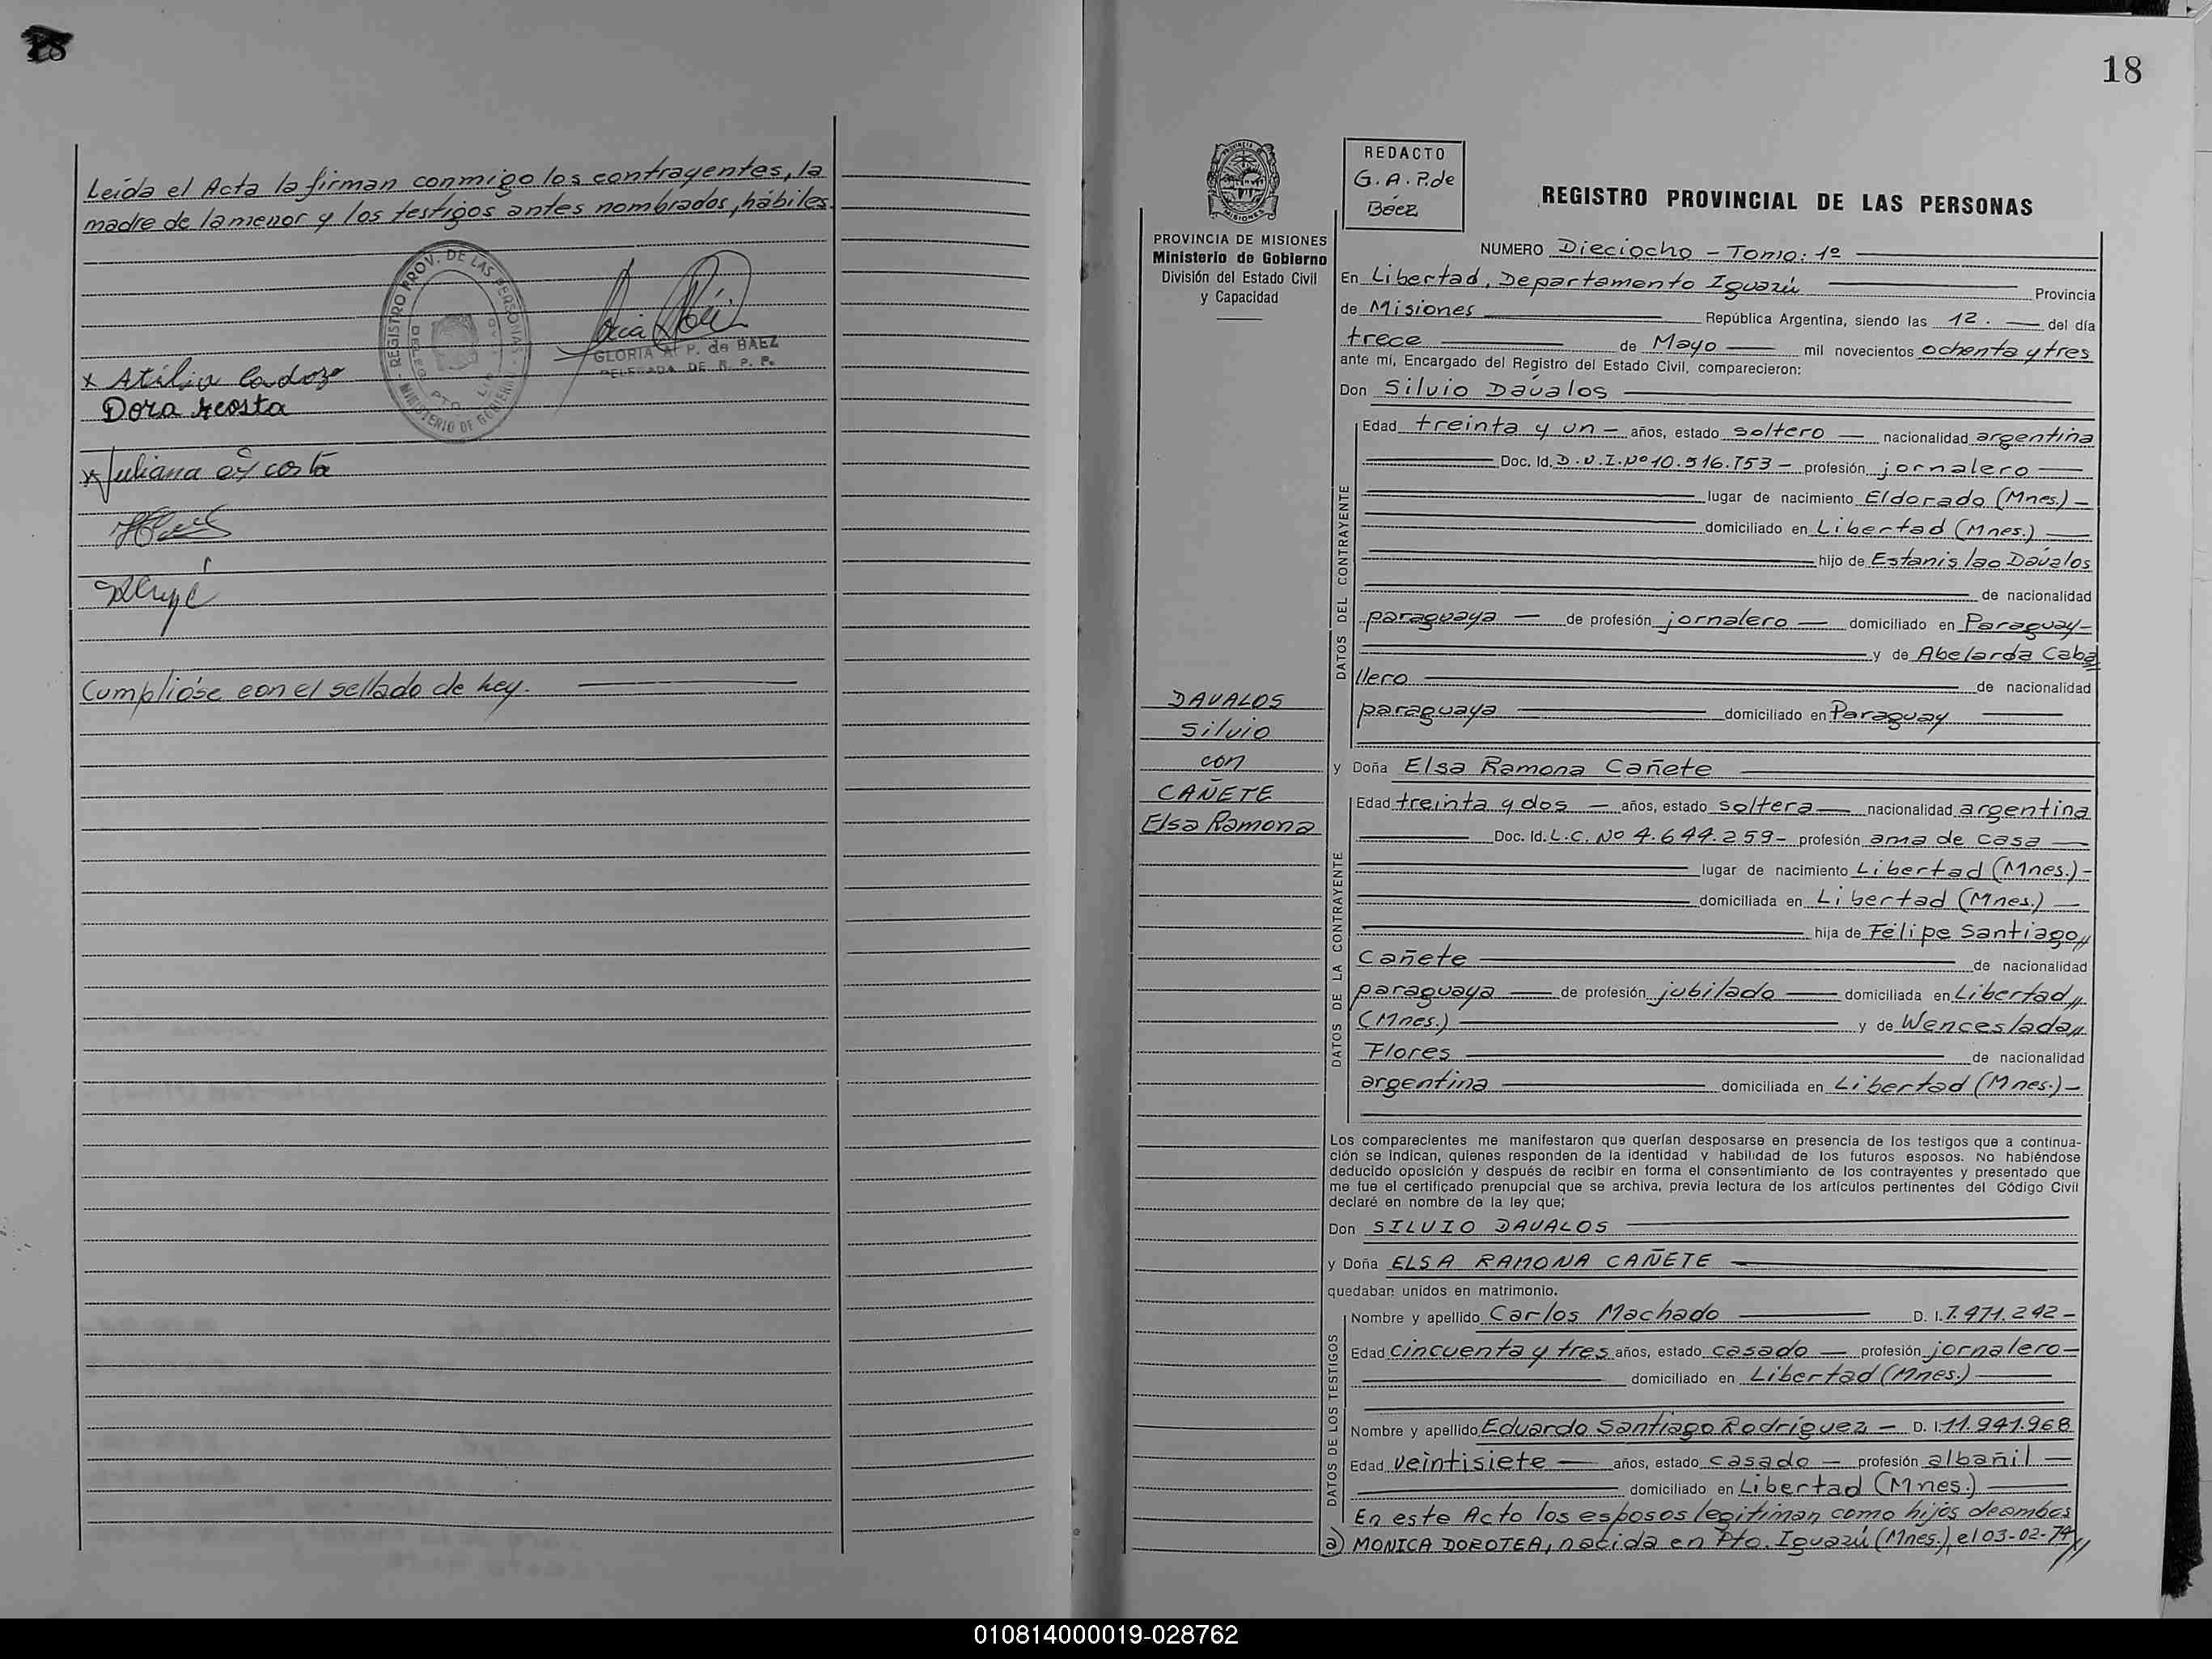 18
Leída el Acta la firman conmigo los contrayentes, la
madre de la menor y los testigos antes nombrados, hábiles.
REGISTRO PROV. DE LAS PERSONAS
MINISTERIO DE GOBIERNO
GLORIA A. P. de BAEZ
DELEGADA DE R. P. P.
x Atilio Cardozo
Dora Acosta
x Juliana
Cumplióse con el sellado de Ley.
18
PROVINCIA DE MISIONES
Ministerio de Gobierno
División del Estado Civil
y Capacidad
REDACTO
G. A. P. de
Báez
REGISTRO PROVINCIAL DE LAS PERSONAS
NUMERO Dieciocho - Tomo: 1º
En Libertad, Departamento Iguazú Provincia
de Misiones República Argentina, siendo las 12. del día
trece de Mayo mil novecientos ochenta y tres
ante mí, Encargado del Registro del Estado Civil, comparecieron:
Don Silvio Dávalos
DATOS DEL CONTRAYENTE
Edad treinta y un - años, estado soltero nacionalidad argentina
Doc. Id. D.N.I. Nº 10.516.753 - profesión jornalero
lugar de nacimiento Eldorado (Mnes.) -
domiciliado en Libertad (Mnes.)
hijo de Estanislao Dávalos
de nacionalidad
paraguaya de profesión jornalero domiciliado en Paraguay -
y de Abelarda Caba
llero de nacionalidad
paraguaya domiciliado en Paraguay
DAVALOS
Silvio
con
CAÑETE
Elsa Ramona
y Doña Elsa Ramona Cañete
DATOS DE LA CONTRAYENTE
Edad treinta y dos años, estado soltera nacionalidad argentina
Doc. Id. L.C. Nº 4.644.259 - profesión ama de casa
lugar de nacimiento Libertad (Mnes.) -
domiciliada en Libertad (Mnes.)
hija de Félipe Santiago//
Cañete de nacionalidad
paraguaya de profesión jubilado domiciliada en Libertad//
(Mnes.) y de Wenceslada//
Flores de nacionalidad
argentina domiciliada en Libertad (Mnes.) -
Los comparecientes me manifestaron que querían desposarse en presencia de los testigos que a continua-
ción se indican, quienes responden de la identidad y habilidad de los futuros esposos. No habiéndose
deducido oposición y después de recibir en forma el consentimiento de los contrayentes y presentado que
me fue el certificado prenupcial que se archiva, previa lectura de los artículos pertinentes del Código Civil
declaré en nombre de la ley que;
Don SILVIO DAVALOS
y Doña ELSA RAMONA CAÑETE
quedaban unidos en matrimonio.
DATOS DE LOS TESTIGOS
Nombre y apellido Carlos Machado D. I. 7.471.242 -
Edad cincuenta y tres años, estado casado profesión jornalero -
domiciliado en Libertad (Mnes.)
Nombre y apellido Eduardo Santiago Rodríguez - D. I. 11.941.968
Edad veintisiete años, estado casado - profesión albañil
domiciliado en Libertad (Mnes.)
En este Acto los esposos legitiman como hijos de ambos
a) MONICA DOROTEA, nacida en Pto. Iguazú (Mnes.), el 03-02-74//
010814000019-028762